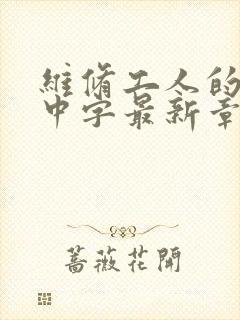 維脩工人的
中字最新章
薔薇花開